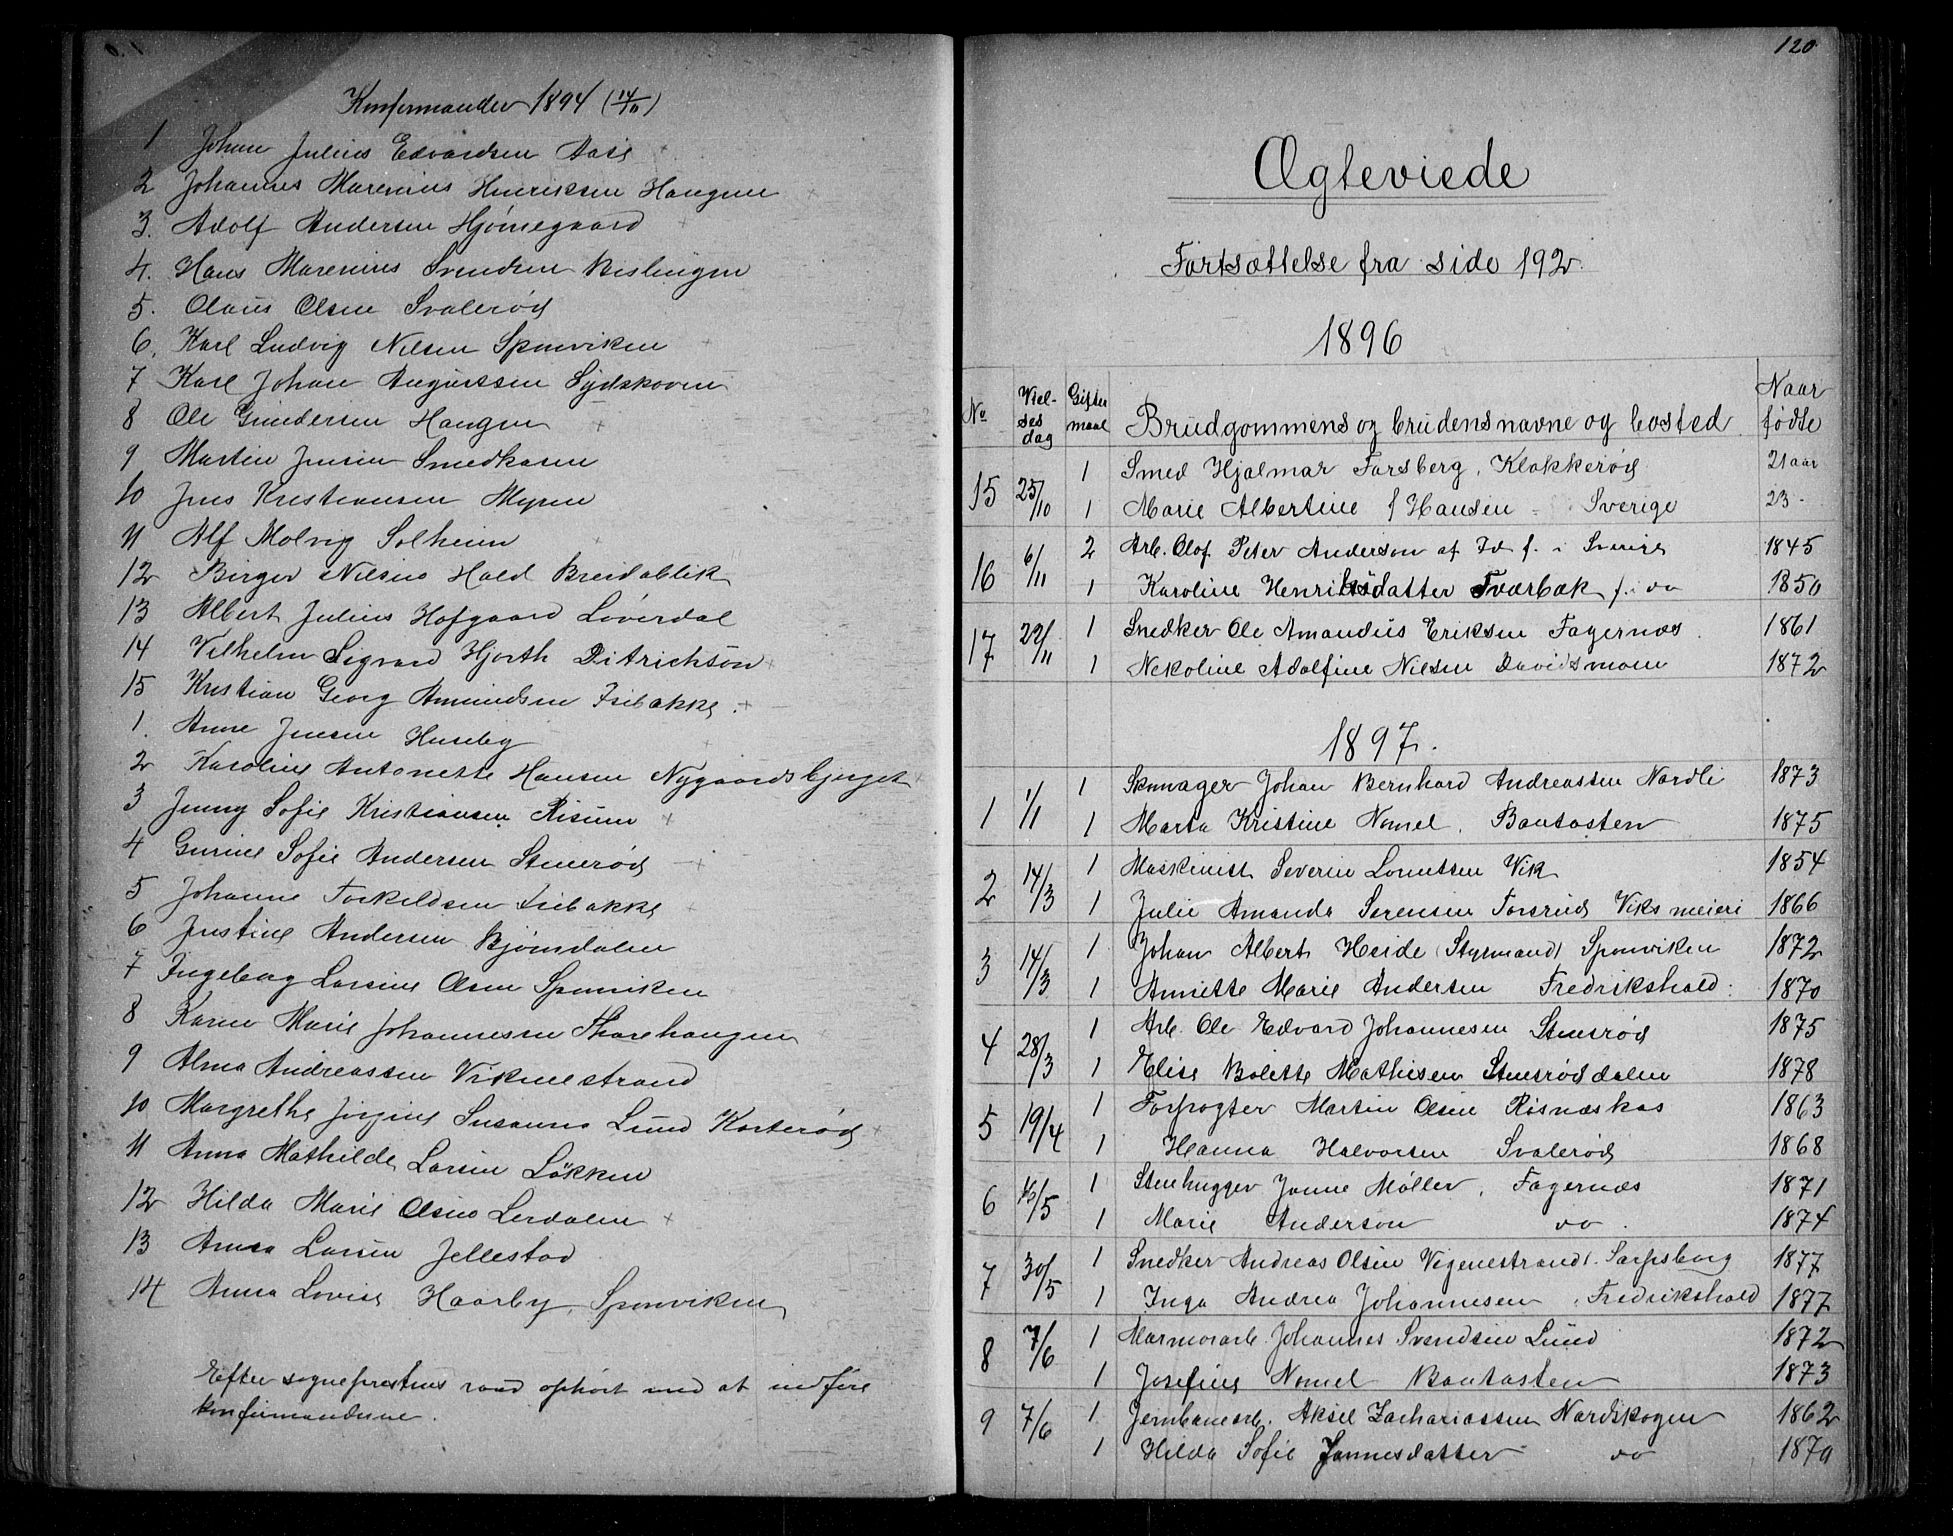 Konfirmander 1894 (14/10)
1 Johan Julius Edvardsen Aase
2 Johannes Marenius Henriksen Haugen
3. Adolf Andersen Hjørnegaard
4. Hans Marenius Svendsen Bislingen
5. Olaus Olsen Svalerød
6. Karl Ludvig Nilsen Sponviken
7 Karl Johan Augustsen Sydskoven
8 Ole Gundersen Haugen
9 Martin Jensen Smedkasen
10 Jens Kristiansen Myren
11 Alf Molvig Solheim
12 Birger Nilsen Hold Breidablik
13 Albert Julius Hofgaard Løverdal
14 Vilhelm Sigvard Hjorth Ditrichson
15 Kristian Georg Amundsen Isebakke
1. Anne Jensen Huseby
2 Karoline Antonette Hansen Nygaardsbjerget
3 Jenny Sofie Kristiansen Risum
4 Gurine Sofie Andersen Stenerød
5 Johanne Torkildsen Isebakke
6 Justine Andersen Bjørndalen
7 Ingeborg Larsine Olsen Sponviken
8 Karen Marie Johannessen Skarehaugen
9 Alma Andreassen Viknestrand
10 Margrethe Jørgine Susanna Lund Korterød
11 Anna Mathilde Larsen Løkken
12 Hilda Marie Olsen Lerdalen
13 Anna Larsen Jellestad
14 Anna Lovise Haarby, Sponviken
Efter sogneprestens raad ophørt med at indføre
konfirmanderne.
120
Ægteviede
Fortsættelse fra side 192.
1896
No Vielsesdag Giftermaal Brudgommens og brudens navne og bosted Naar fødte
15 25/10 1 Smed Hjalmar Forsberg, Klokkerød 21 aar
1 Marie Albertine f Hansen - Sverige 23 -
16 6/11 2 Arb. Olof Peter Anderson af Id f. i Sverige 1845
1 Karoline Henriksdatter Tværbæk f. i do 1850
17 22/11 1 Snedker Ole Amandus Eriksen Fagernæs 1861
1 Nekoline Adolfine Nilsen Davidsmoen 1872
1897.
1 1/1 1 Skomager Johan Bernhard Andreassen Nordli 1873
1 Marta Kristine Nomel, Bautasten 1875
2 14/3 1 Maskinist Severin Lorentsen Vik 1854
1 Julie Amanda Sørensen Forsrud Viks meieri 1866
3 14/3 1 Johan Albert Heide (Styrmand) Sponviken 1872
1 Annette Marie Andersen Fredrikshald. 1870
4 28/3 1 Arb. Ole Edvard Johannesen Stenrød 1875
1 Elise Bolette Mathisen Stenrøddalen 1878
5 19/4 1 Forpagter Martin Olsen Risnæskas 1863
1 Hanna Halvorsen Svalerød 1868
6 16/5 1 Stenhugger Janne Møller, Fagernæs 1871
1 Marie Anderson do. 1874
7 30/5 1 Snedker Andreas Olsen Vigenestrand f. Sarpsborg 1877
1 Inga Andrea Johannesen, Fredrikshald 1877
8 7/6 1 Marmorarb. Johannes Svendsen Lund 1872
1 Josefine Nomel Bautasten 1873
9 7/6 1 Jernbanearb. Aksel Zachariassen Nordskogen 1862
1 Hilda Sofie Jannesdatter do 1870